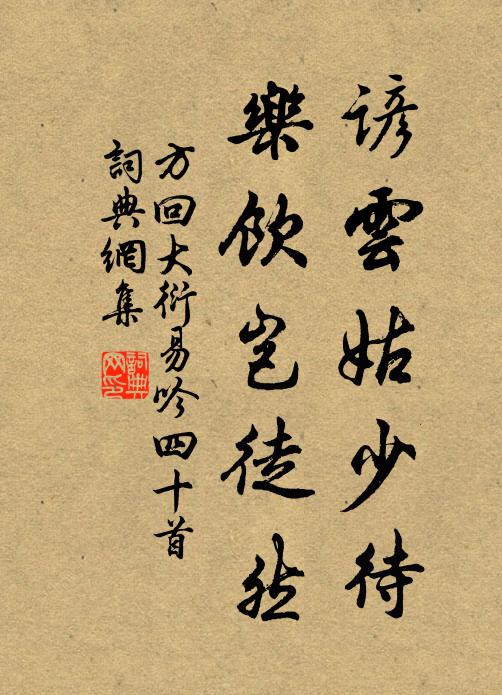 諺雲姑少待
樂飲豈徒然
方回大衍易吟四十首
詞典網集
詞典
网印